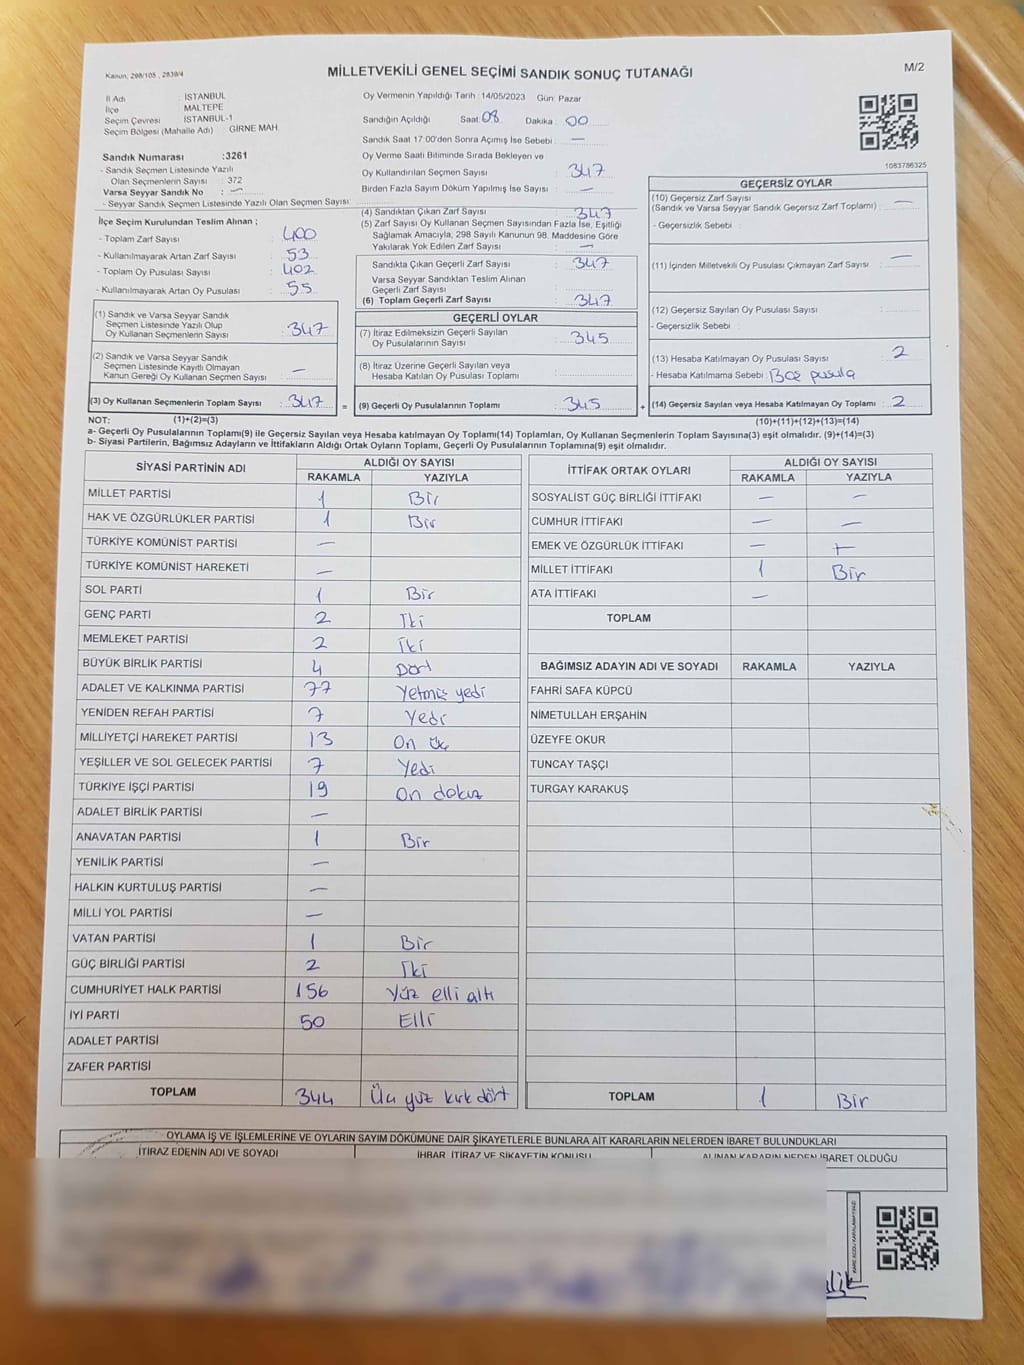 Kanun, 298/105 , 2839/4
MİLLETVEKİLİ GENEL SEÇİMİ SANDIK SONUÇ TUTANAĞI
M/2
İl Adı : İSTANBUL
İlçe : MALTEPE
Seçim Çevresi : İSTANBUL-1
Seçim Bölgesi (Mahalle Adı) : GİRNE MAH
Sandık Numarası :3261
- Sandık Seçmen Listesinde Yazılı
Olan Seçmenlerin Sayısı : 372
Varsa Seyyar Sandık No : —
- Seyyar Sandık Seçmen Listesinde Yazılı Olan Seçmen Sayısı :
Oy Vermenin Yapıldığı Tarih : 14/05/2023 Gün: Pazar
Sandığın Açıldığı Saat: 08 Dakika : 00
Sandık Saat 17:00'den Sonra Açımış İse Sebebi : —
Oy Verme Saati Bitiminde Sırada Bekleyen ve
Oy Kullandırılan Seçmen Sayısı : 347
Birden Fazla Sayım Döküm Yapılmış İse Sayısı : —
1083786325
İlçe Seçim Kurulundan Teslim Alınan ;
- Toplam Zarf Sayısı : 400
- Kullanılmayarak Artan Zarf Sayısı : 53
- Toplam Oy Pusulası Sayısı : 402
- Kullanılmayarak Artan Oy Pusulası : 55
(1) Sandık ve Varsa Seyyar Sandık
Seçmen Listesinde Yazılı Olup
Oy Kullanan Seçmenlerin Sayısı : 347
(2) Sandık ve Varsa Seyyar Sandık
Seçmen Listesinde Kayıtlı Olmayan
Kanun Gereği Oy Kullanan Seçmen Sayısı : —
(3) Oy Kullanan Seçmenlerin Toplam Sayısı : 347
(4) Sandıktan Çıkan Zarf Sayısı : 347
(5) Zarf Sayısı Oy Kullanan Seçmen Sayısından Fazla İse, Eşitliği
Sağlamak Amacıyla, 298 Sayılı Kanunun 98. Maddesine Göre
Yakılarak Yok Edilen Zarf Sayısı : —
Sandıkta Çıkan Geçerli Zarf Sayısı : 347
Varsa Seyyar Sandıktan Teslim Alınan
Geçerli Zarf Sayısı :
(6) Toplam Geçerli Zarf Sayısı : 347
GEÇERLİ OYLAR
(7) İtiraz Edilmeksizin Geçerli Sayılan
Oy Pusulalarının Sayısı : 345
(8) İtiraz Üzerine Geçerli Sayılan veya
Hesaba Katılan Oy Pusulası Toplamı :
= (9) Geçerli Oy Pusulalarının Toplamı : 345
GEÇERSİZ OYLAR
(10) Geçersiz Zarf Sayısı
(Sandık ve Varsa Seyyar Sandık Geçersiz Zarf Toplamı) : —
- Geçersizlik Sebebi :
(11) İçinden Milletvekili Oy Pusulası Çıkmayan Zarf Sayısı : —
(12) Geçersiz Sayılan Oy Pusulası Sayısı :
- Geçersizlik Sebebi :
(13) Hesaba Katılmayan Oy Pusulası Sayısı : 2
- Hesaba Katılmama Sebebi : Boş pusula
+ (14) Geçersiz Sayılan veya Hesaba Katılmayan Oy Toplamı : 2
NOT: (1)+(2)=(3) (10)+(11)+(12)+(13)=(14)
a- Geçerli Oy Pusulalarının Toplamı(9) ile Geçersiz Sayılan veya Hesaba katılmayan Oy Toplamı(14) Toplamları, Oy Kullanan Seçmenlerin Toplam Sayısına(3) eşit olmalıdır. (9)+(14)=(3)
b- Siyasi Partilerin, Bağımsız Adayların ve İttifakların Aldığı Ortak Oyların Toplamı, Geçerli Oy Pusulalarının Toplamına(9) eşit olmalıdır.
SİYASİ PARTİNİN ADI ALDIĞI OY SAYISI
RAKAMLA YAZIYLA
MİLLET PARTİSİ 1 Bir
HAK VE ÖZGÜRLÜKLER PARTİSİ 1 Bir
TÜRKİYE KOMÜNİST PARTİSİ —
TÜRKİYE KOMÜNİST HAREKETİ —
SOL PARTİ 1 Bir
GENÇ PARTİ 2 İki
MEMLEKET PARTİSİ 2 İki
BÜYÜK BİRLİK PARTİSİ 4 Dört
ADALET VE KALKINMA PARTİSİ 77 Yetmiş yedi
YENİDEN REFAH PARTİSİ 7 Yedi
MİLLİYETÇİ HAREKET PARTİSİ 13 On üç
YEŞİLLER VE SOL GELECEK PARTİSİ 7 Yedi
TÜRKİYE İŞÇİ PARTİSİ 19 On dokuz
ADALET BİRLİK PARTİSİ —
ANAVATAN PARTİSİ 1 Bir
YENİLİK PARTİSİ —
HALKIN KURTULUŞ PARTİSİ —
MİLLİ YOL PARTİSİ —
VATAN PARTİSİ 1 Bir
GÜÇ BİRLİĞİ PARTİSİ 2 İki
CUMHURİYET HALK PARTİSİ 156 Yüz elli altı
İYİ PARTİ 50 Elli
ADALET PARTİSİ
ZAFER PARTİSİ
TOPLAM 344 Üç yüz kırk dört
İTTİFAK ORTAK OYLARI ALDIĞI OY SAYISI
RAKAMLA YAZIYLA
SOSYALİST GÜÇ BİRLİĞİ İTTİFAKI — —
CUMHUR İTTİFAKI — —
EMEK VE ÖZGÜRLÜK İTTİFAKI — —
MİLLET İTTİFAKI 1 Bir
ATA İTTİFAKI —
TOPLAM
BAĞIMSIZ ADAYIN ADI VE SOYADI RAKAMLA YAZIYLA
FAHRİ SAFA KÜPCÜ
NİMETULLAH ERŞAHİN
ÜZEYFE OKUR
TUNCAY TAŞÇI
TURGAY KARAKUŞ
TOPLAM 1 Bir
OYLAMA İŞ VE İŞLEMLERİNE VE OYLARIN SAYIM DÖKÜMÜNE DAİR ŞİKAYETLERLE BUNLARA AİT KARARLARIN NELERDEN İBARET BULUNDUKLARI
İTİRAZ EDENİN ADI VE SOYADI İHBAR, İTİRAZ VE ŞİKAYETİN KONUSU ALINAN KARARIN NEDEN İBARET OLDUĞU